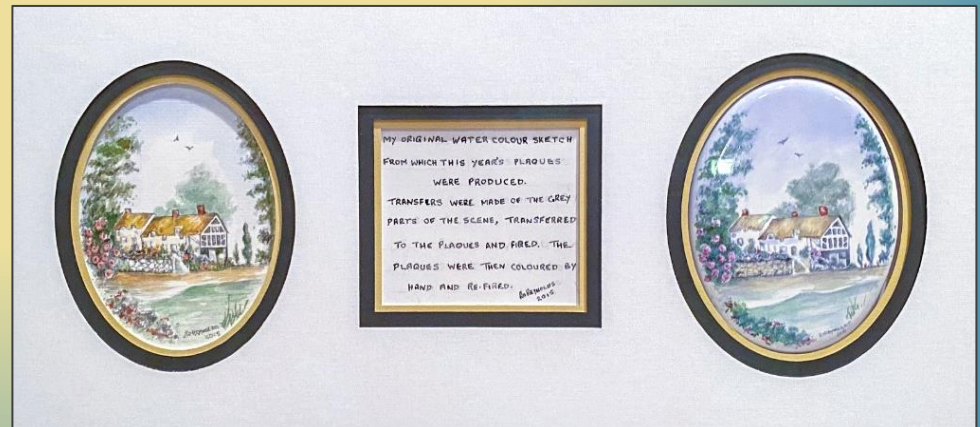 MY ORIGINAL WATER COLOUR SKETCH
FROM WHICH THIS YEAR'S PLAQUES
WERE PRODUCED.
TRANSFERS WERE MADE OF THE GREY
PARTS OF THE SCENE, TRANSFERRED
TO THE PLAQUES AND FIRED. THE
PLAQUES WERE THEN COLOURED BY
HAND AND RE-FIRED.
2015